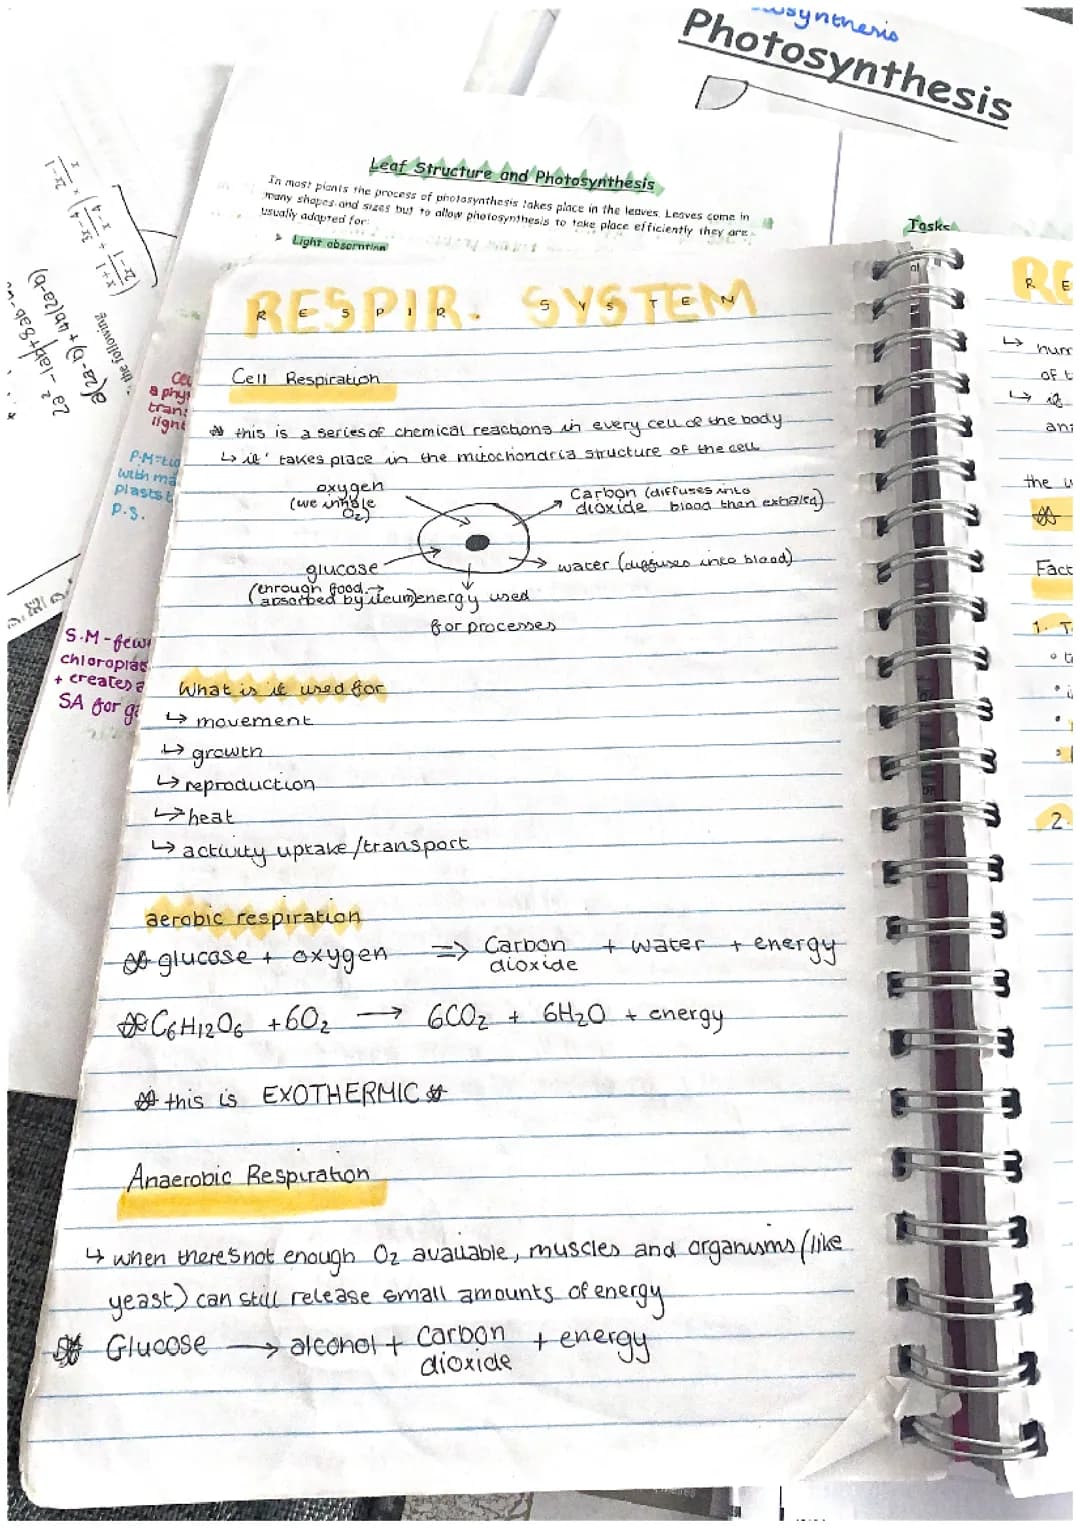 Photosynthesis
Leaf Structure and Photosynthesis
In most plants the process of photosynthesis takes place in the leaves. Leaves come in
many shapes and sizes but to allow photosynthesis to take place efficiently they are
usually adapted for:
Light absorption
Tasks
RESPIR. SYSTEM
RESPIR. SYSTEM
Cell Respiration
this is a series of chemical reactions in every cell of the body
↳ it' takes place in the mitochondria structure of the cell
oxygen
(we inhale
O₂)
Carbon (diffuses into
dioxide blood then exhaled)
glucose
(through food →
absorbed by ileum)
water (diffuses into blood)
energy used
for processes
What is it used for
↳ movement
↳ growth
↳ reproduction
↳ heat
↳ activity uptake/transport
aerobic respiration
glucose + oxygen ⇒ Carbon dioxide + water + energy
C₆H₁₂O₆ + 6O₂ → 6CO₂ + 6H₂O + energy
this is EXOTHERMIC
Anaerobic Respiration
↳ when there's not enough O₂ available, muscles and organisms (like
yeast) can still release small amounts of energy
Glucose → alcohol + Carbon dioxide + energy
P.S.
S.M - few
+ creates a
SA for
the following
RE
R E
↳
of t
↳ if
the
Fact
1. T
2.